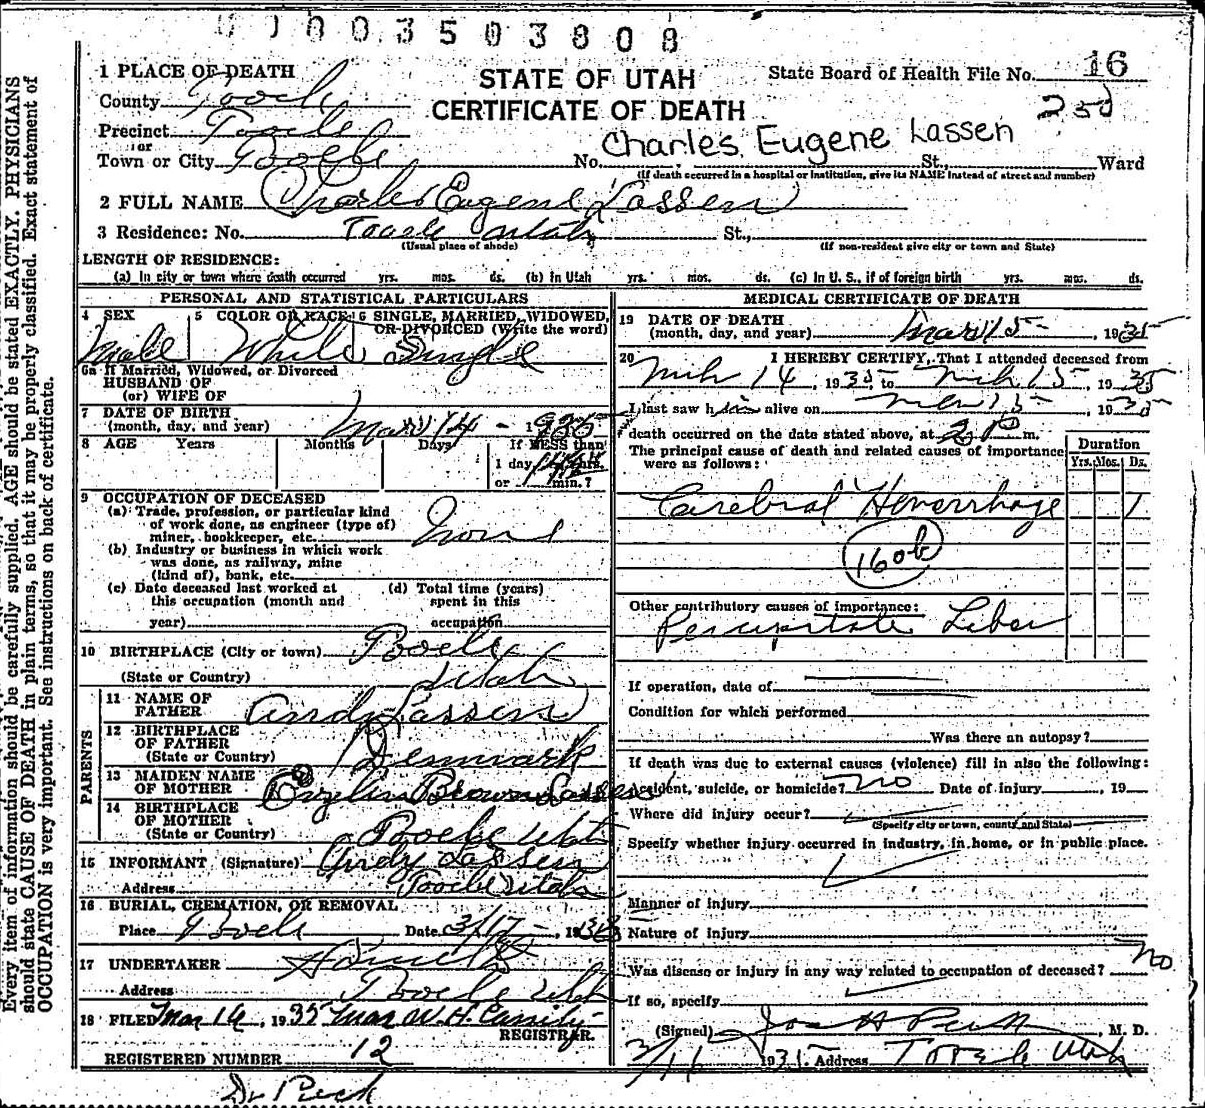 0 0 0 0 3 5 0 3 8 0 8
STATE OF UTAH
CERTIFICATE OF DEATH
State Board of Health File No. 16
230
1 PLACE OF DEATH
County Tooele
Precinct Tooele
or
Town or City Tooele No. Charles Eugene Lassen St., Ward
(If death occurred in a hospital or institution, give its NAME instead of street and number)
2 FULL NAME Charles Eugene Lassen
3 Residence: No. Tooele Utah St.,
(Usual place of abode) (If non-resident give city or town and State)
LENGTH OF RESIDENCE:
(a) In city or town where death occurred yrs. mos. ds. (b) in Utah yrs. mos. ds. (c) In U. S., if of foreign birth yrs. mos. ds.
PERSONAL AND STATISTICAL PARTICULARS
4 SEX 5 COLOR OR RACE 6 SINGLE, MARRIED, WIDOWED,
OR DIVORCED (Write the word)
Male White Single
6a If Married, Widowed, or Divorced
HUSBAND OF
(or) WIFE OF
7 DATE OF BIRTH
(month, day, and year) Mar 14 - 1935
8 AGE Years Months Days If LESS than
1 day hrs.
or min.?
9 OCCUPATION OF DECEASED
(a) Trade, profession, or particular kind
of work done, as engineer (type of)
miner, bookkeeper, etc. None
(b) Industry or business in which work
was done, as railway, mine
(kind of), bank, etc.
(c) Date deceased last worked at
this occupation (month and
year)
(d) Total time (years)
spent in this
occupation
10 BIRTHPLACE (City or town) Tooele
(State or Country) Utah
PARENTS
11 NAME OF
FATHER Andy Lassen
12 BIRTHPLACE
OF FATHER
(State or Country) Denmark
13 MAIDEN NAME
OF MOTHER Brown Lassen
14 BIRTHPLACE
OF MOTHER
(State or Country) Tooele Utah
15 INFORMANT (Signature) Andy Lassen
Address Tooele Utah
16 BURIAL, CREMATION, OR REMOVAL
Place Tooele Date 3/17 -, 1935
17 UNDERTAKER
Address Tooele Utah
18 FILED Mar 16, 1935 W.H. Cassity
REGISTRAR.
REGISTERED NUMBER 12
Dr Peck
MEDICAL CERTIFICATE OF DEATH
19 DATE OF DEATH
(month, day, and year) Mar 15 - 1935
20 I HEREBY CERTIFY, That I attended deceased from
Mch 14, 1935 to Mch 15, 1935
I last saw him alive on Mch 15 -, 1935
death occurred on the date stated above, at 2 P m.
The principal cause of death and related causes of importance
were as follows:
Duration
Yrs. Mos. Ds.
Cerebral Hemorrhage 1
160b
Other contributory causes of importance:
If operation, date of
Condition for which performed
Was there an autopsy?
If death was due to external causes (violence) fill in also the following:
Accident, suicide, or homicide? no Date of injury , 19
Where did injury occur?
(Specify city or town, county and State)
Specify whether injury occurred in industry, in home, or in public place.
Manner of injury
Nature of injury
Was disease or injury in any way related to occupation of deceased? no
If so, specify
(Signed) Jos H Peck, M. D.
3/16 1935 Address Tooele Utah
Every item of information should be carefully supplied. AGE should be stated EXACTLY. PHYSICIANS
should state CAUSE OF DEATH in plain terms, so that it may be properly classified. Exact statement of
OCCUPATION is very important. See instructions on back of certificate.